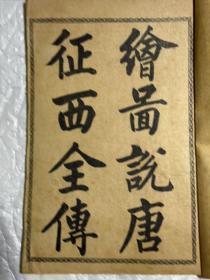 繪圖説唐
征西全傳